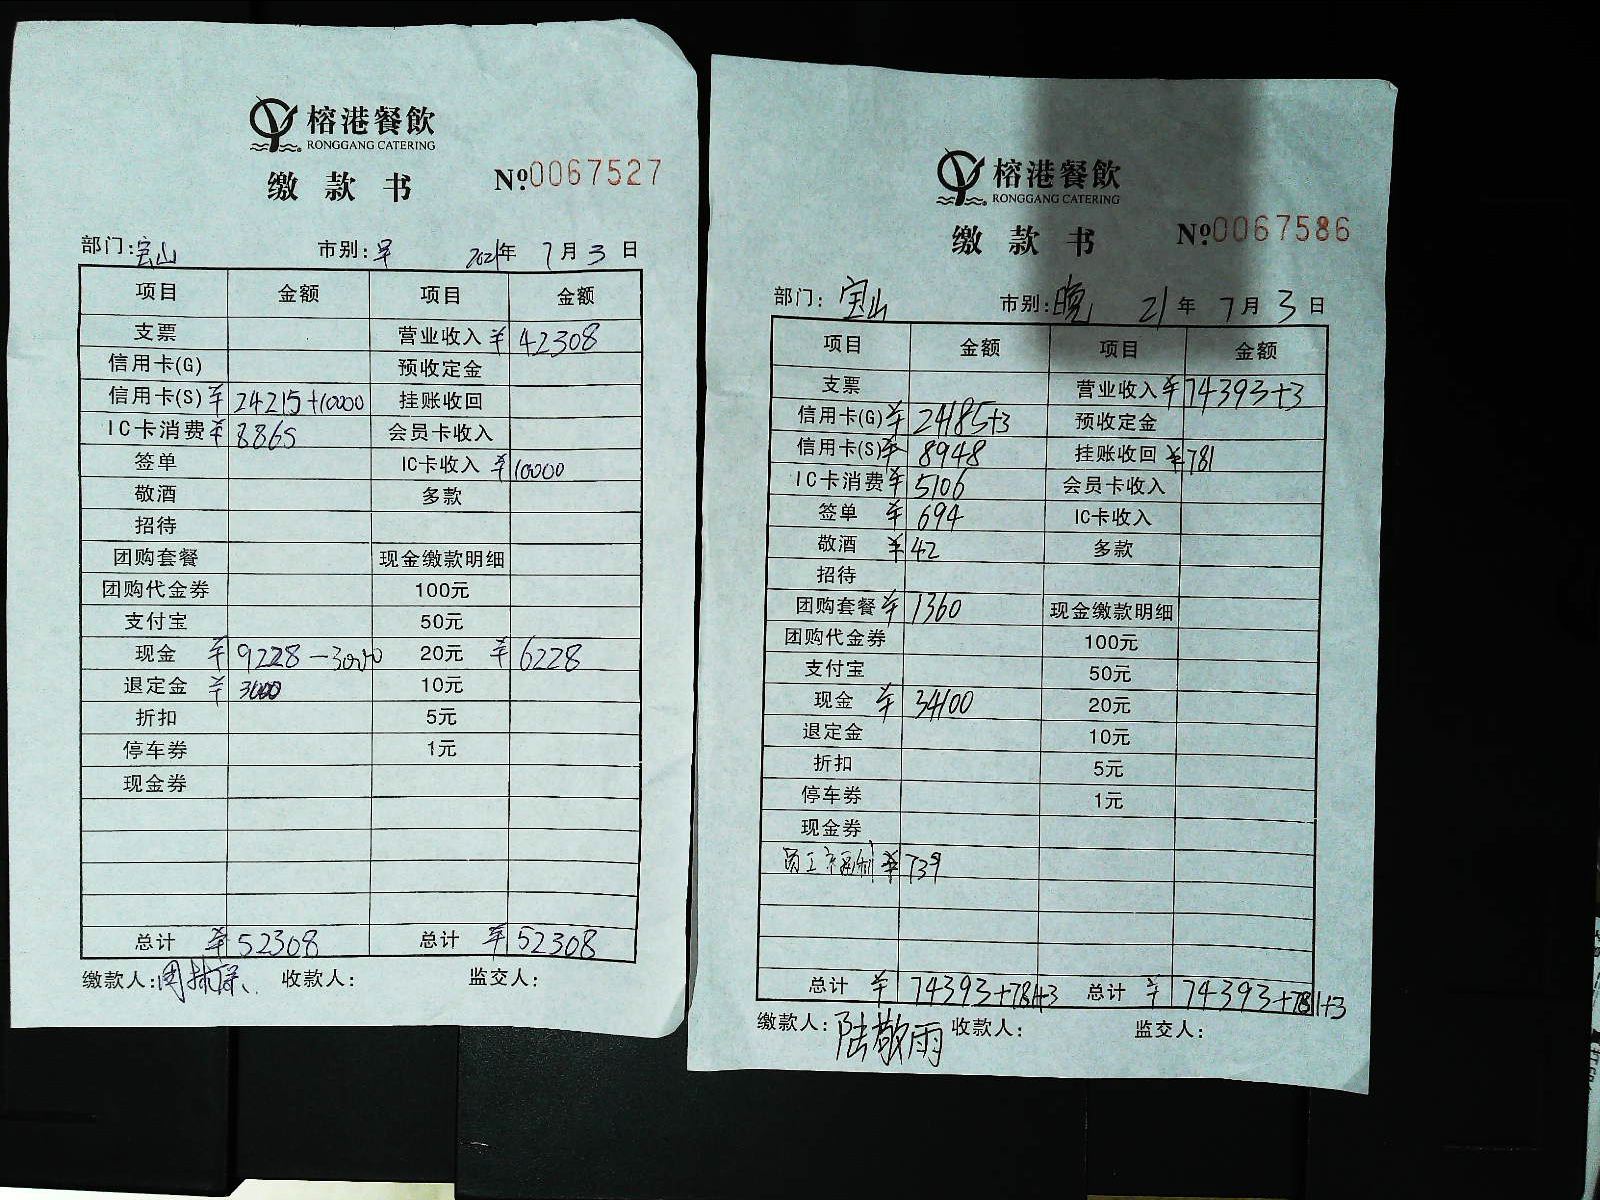 榕港餐飲
RONGGANG CATERING
缴款书 №0067527
部门:宝山 市别:早 2021年 7月 3日
项目 金额 项目 金额
支票 营业收入 ¥42308
信用卡(G) 预收定金
信用卡(S) ¥24215+10000 挂账收回
IC卡消费 ¥8865 会员卡收入
签单 IC卡收入 ¥10000
敬酒 多款
招待
团购套餐 现金缴款明细
团购代金券 100元
支付宝 50元
现金 ¥9228-3000 20元 ¥6228
退定金 ¥3000 10元
折扣 5元
停车券 1元
现金券
总计 ¥52308 总计 ¥52308
缴款人: 收款人: 监交人:
榕港餐飲
RONGGANG CATERING
缴款书 №0067586
部门:宝山 市别:晚 21年 7月 3日
项目 金额 项目 金额
支票 营业收入 ¥74393+3
信用卡(G) ¥24185+3 预收定金
信用卡(S) ¥8948 挂账收回 ¥781
IC卡消费 ¥5106 会员卡收入
签单 ¥694 IC卡收入
敬酒 ¥42 多款
招待
团购套餐 ¥1360 现金缴款明细
团购代金券 100元
支付宝 50元
现金 ¥34100 20元
退定金 10元
折扣 5元
停车券 1元
现金券
¥739
总计 ¥74393+781+3 总计 ¥74393+781+3
缴款人:陆敬雨 收款人: 监交人: